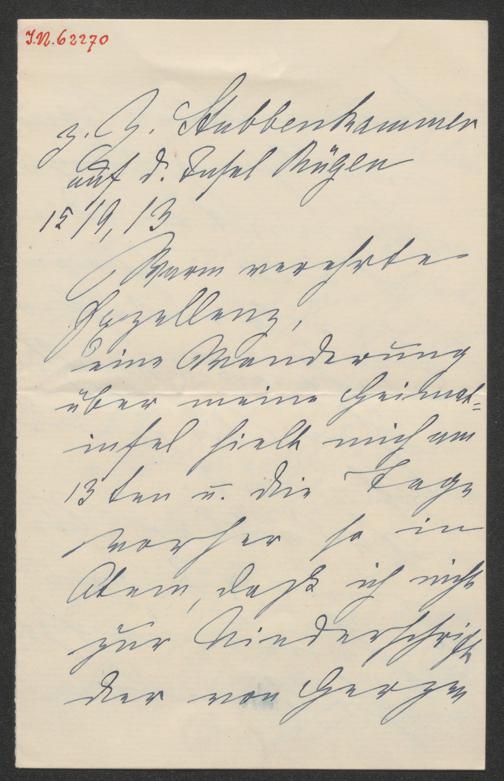 I.N. 62270
z. Z. Stubbenkammer
auf d. Insel Rügen
15/9, 13
Warm verehrte
Exzellenz,
eine Wanderung
über meine Heimat=
insel hielt mich am
13ten u. die Tage
vorher so in
Atem, dass ich nicht
zur Niederschrift
der von Herzen